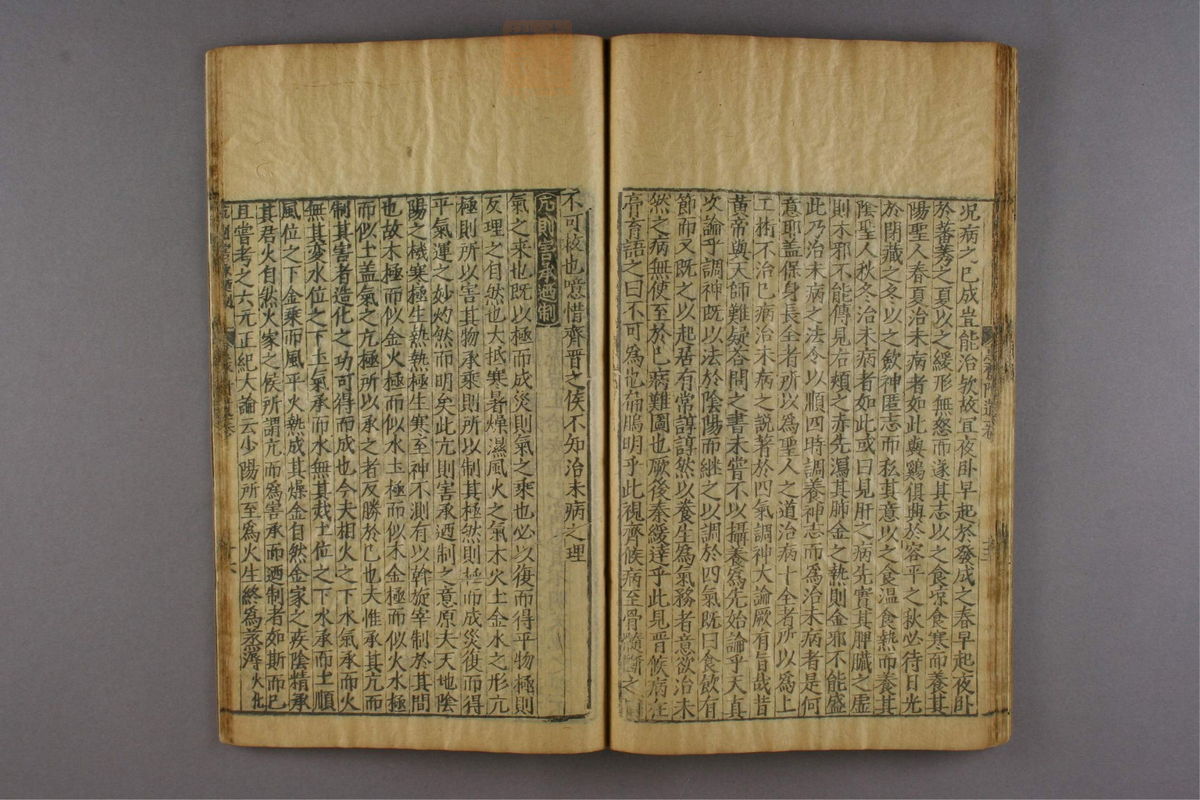 况病之已成豈能治欤故宜夜卧早起於發成之春早起夜卧
於蕃莠之夏以之緩形無怒而遂其志以之食凉食寒而養其
陽聖人春夏治未病者如此與鷄俱興於容平之秋必待日光
於閉藏之冬以之歛神匿志而私其意以之食温食熱而養其
陰聖人秋冬治未病者如此或曰見肝之病先實其脾臟之虚
則木邪不能傳見右頰之赤先瀉其肺金之熱則金邪不能盛
此乃治未病之法今以順四時調養神志而爲治未病者是何
意耶盖保身長全者所以爲聖人之道治病十全者所以爲上
工術不治已病治未病之説著於四氣調神大論厥有旨哉昔
黄帝與天師難疑答問之書未嘗不以攝養爲先始論乎天真
次論乎調神既以法於陰陽而継之以調於四氣既曰食飲有
節而又既之以起居有常諄諄然以養生爲氣務者意欲治未
然之病無使至於已病難圖也厥後秦緩達乎此見晉候病在
膏肓語之曰不可爲也扁鵲明乎此視齊候病至骨髓斷之曰
不可救也噫惜齊晋之侯不知治未病之理
亢則害承廼制
氣之來也既以極而成災則氣之乘也必以復而得平物極則
反理之自然也大抵寒暑燥濕風火之氣木火土金水之形亢
極則所以害其物承乘則所以制其極然則極而成災復而得
平氣運之妙灼然而明矣此亢則害承廼制之意原夫天地陰
陽之機寒極生熱熱極生寒至神不測有以斡旋宰制於其間
也故木極而似金火極而似水土極而似木金極而似火水極
而似土盖氣之亢極所以承之者反勝於已也夫惟承其亢而
制其害者造化之功可得而成也今夫相火之下水氣承而火
無其変水位之下土氣承而水無其烖土位之下水承而土順
風位之下金乘而風平火熱成其燥金自然金家之疾陰精承
其君火自然火家之候所謂亢而爲害承而廼制者如斯而已
且嘗考之六元正紀大論云少陽所至爲火生終爲蒸溽火化